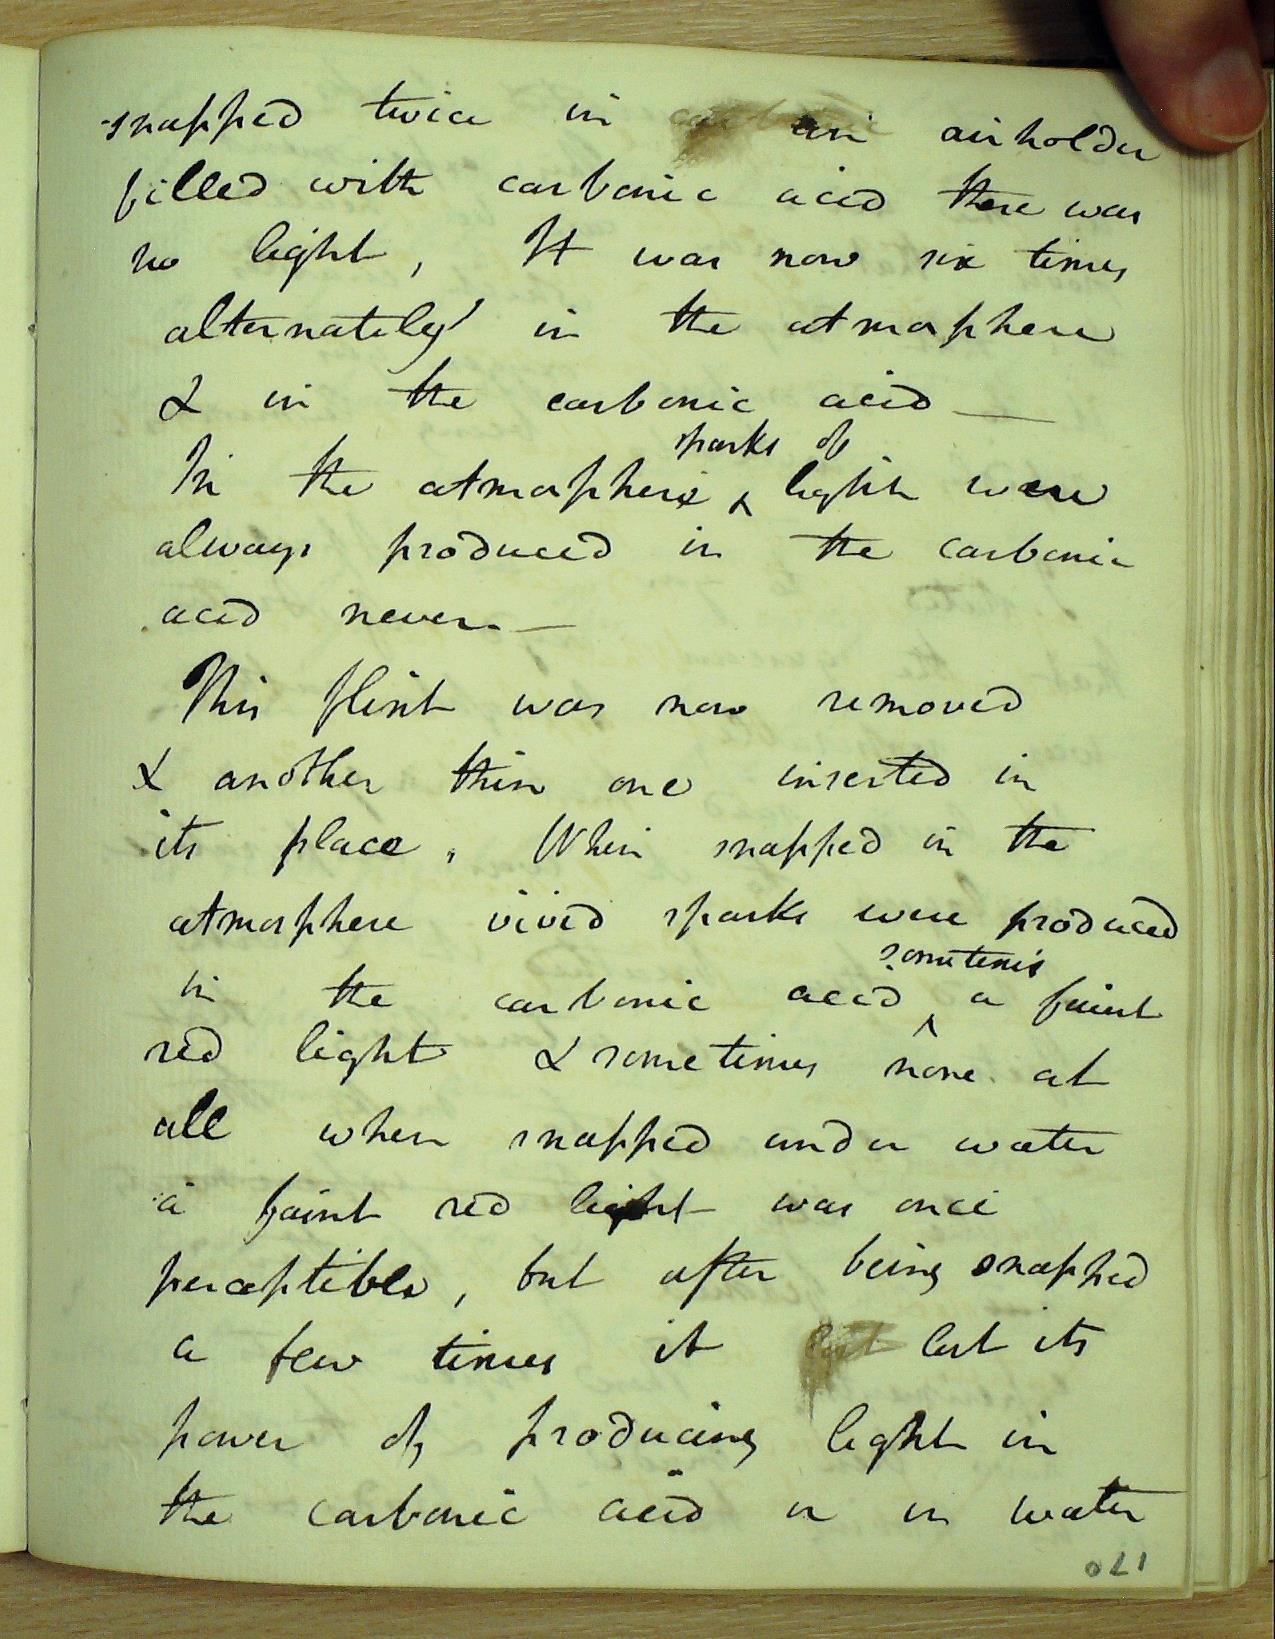 snapped twice in an airholder
filled with carbonic acid there was
no light, It was now six times
alternately in the atmosphere
& in the carbonic acid —
sparks of
In the atmosphere ‸ light were
always produced in the carbonic
acid never. —
This flint was now removed
& another thin one inserted in
its place. When snapped in the
atmosphere vivid sparks were produced
sometimes
in the carbonic acid ‸ a faint
red light & sometimes none at
all when snapped under water
a faint red light was once
perceptible, but after being snapped
a few times it lost its
power of producing light in
the carbonic acid or in water